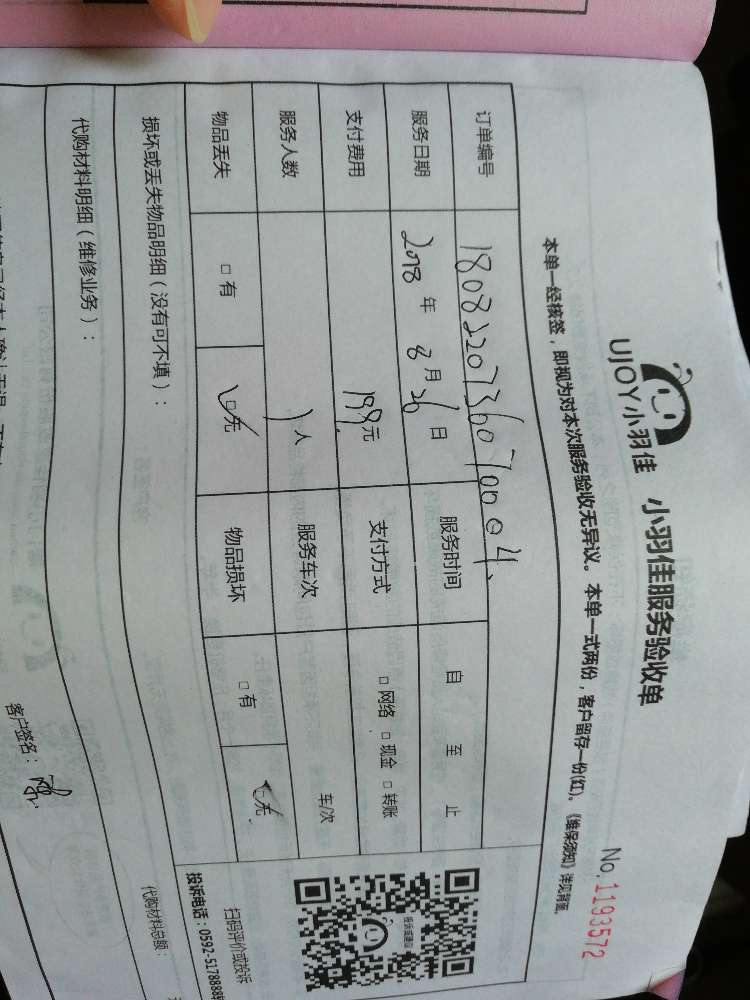 UJOY小羽佳 小羽佳服务验收单
No.1193572
本单一经核签，即视为对本次服务验收无异议。本单一式两份，客户留存一份(红)。《维保须知》详见背面。
订单编号 180822073607004.
服务日期 2018年 8月26日 服务时间 自 至 止
支付费用 199元 支付方式 □网络 □现金 □转账
服务人数 1人 服务车次 车/次
物品丢失 □有 ☑无 物品损坏 □有 ☑无
扫码评价或投诉
投诉电话：0592-5178888转
损坏或丢失物品明细（没有可不填）：
代购材料明细（维修业务）：
代购材料总额：
客户签名：